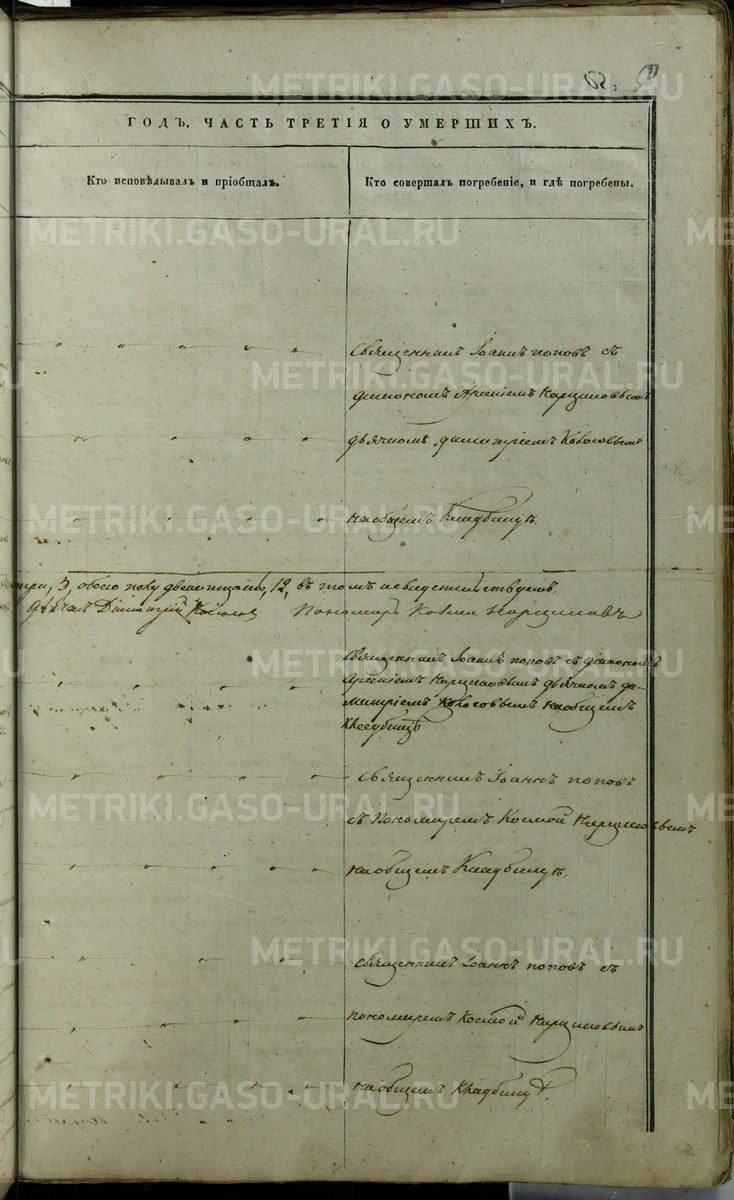 ГОДЪ, ЧАСТЬ ТРЕТІЯ О УМЕРШИХЪ.
Кто исповѣдывалъ и пріобщалъ.
Кто совершалъ погребеніе, и гдѣ погребены.
священникъ Іоаннъ поповъ съ
діакономъ Арсеніемъ
дьячкомъ димитріемъ Колосовымъ
на общемъ Кладбищѣ.
три, 3, обоего полу двенатцать, 12, въ томъ
Дьячекъ Димитрій Колосовъ Пономарь Козма
священникъ Іоаннъ поповъ съ діакономъ
Арсеніемъ дьячкомъ ди-
митріемъ Колосовымъ на общемъ
кладбищѣ
священникъ Іоаннъ поповъ
съ Пономаремъ Космой
на общемъ Кладбищѣ.
священникъ Іоаннъ поповъ съ
пономаремъ Космой
на общемъ Кладбищѣ.
METRIKI.GASO-URAL.RU